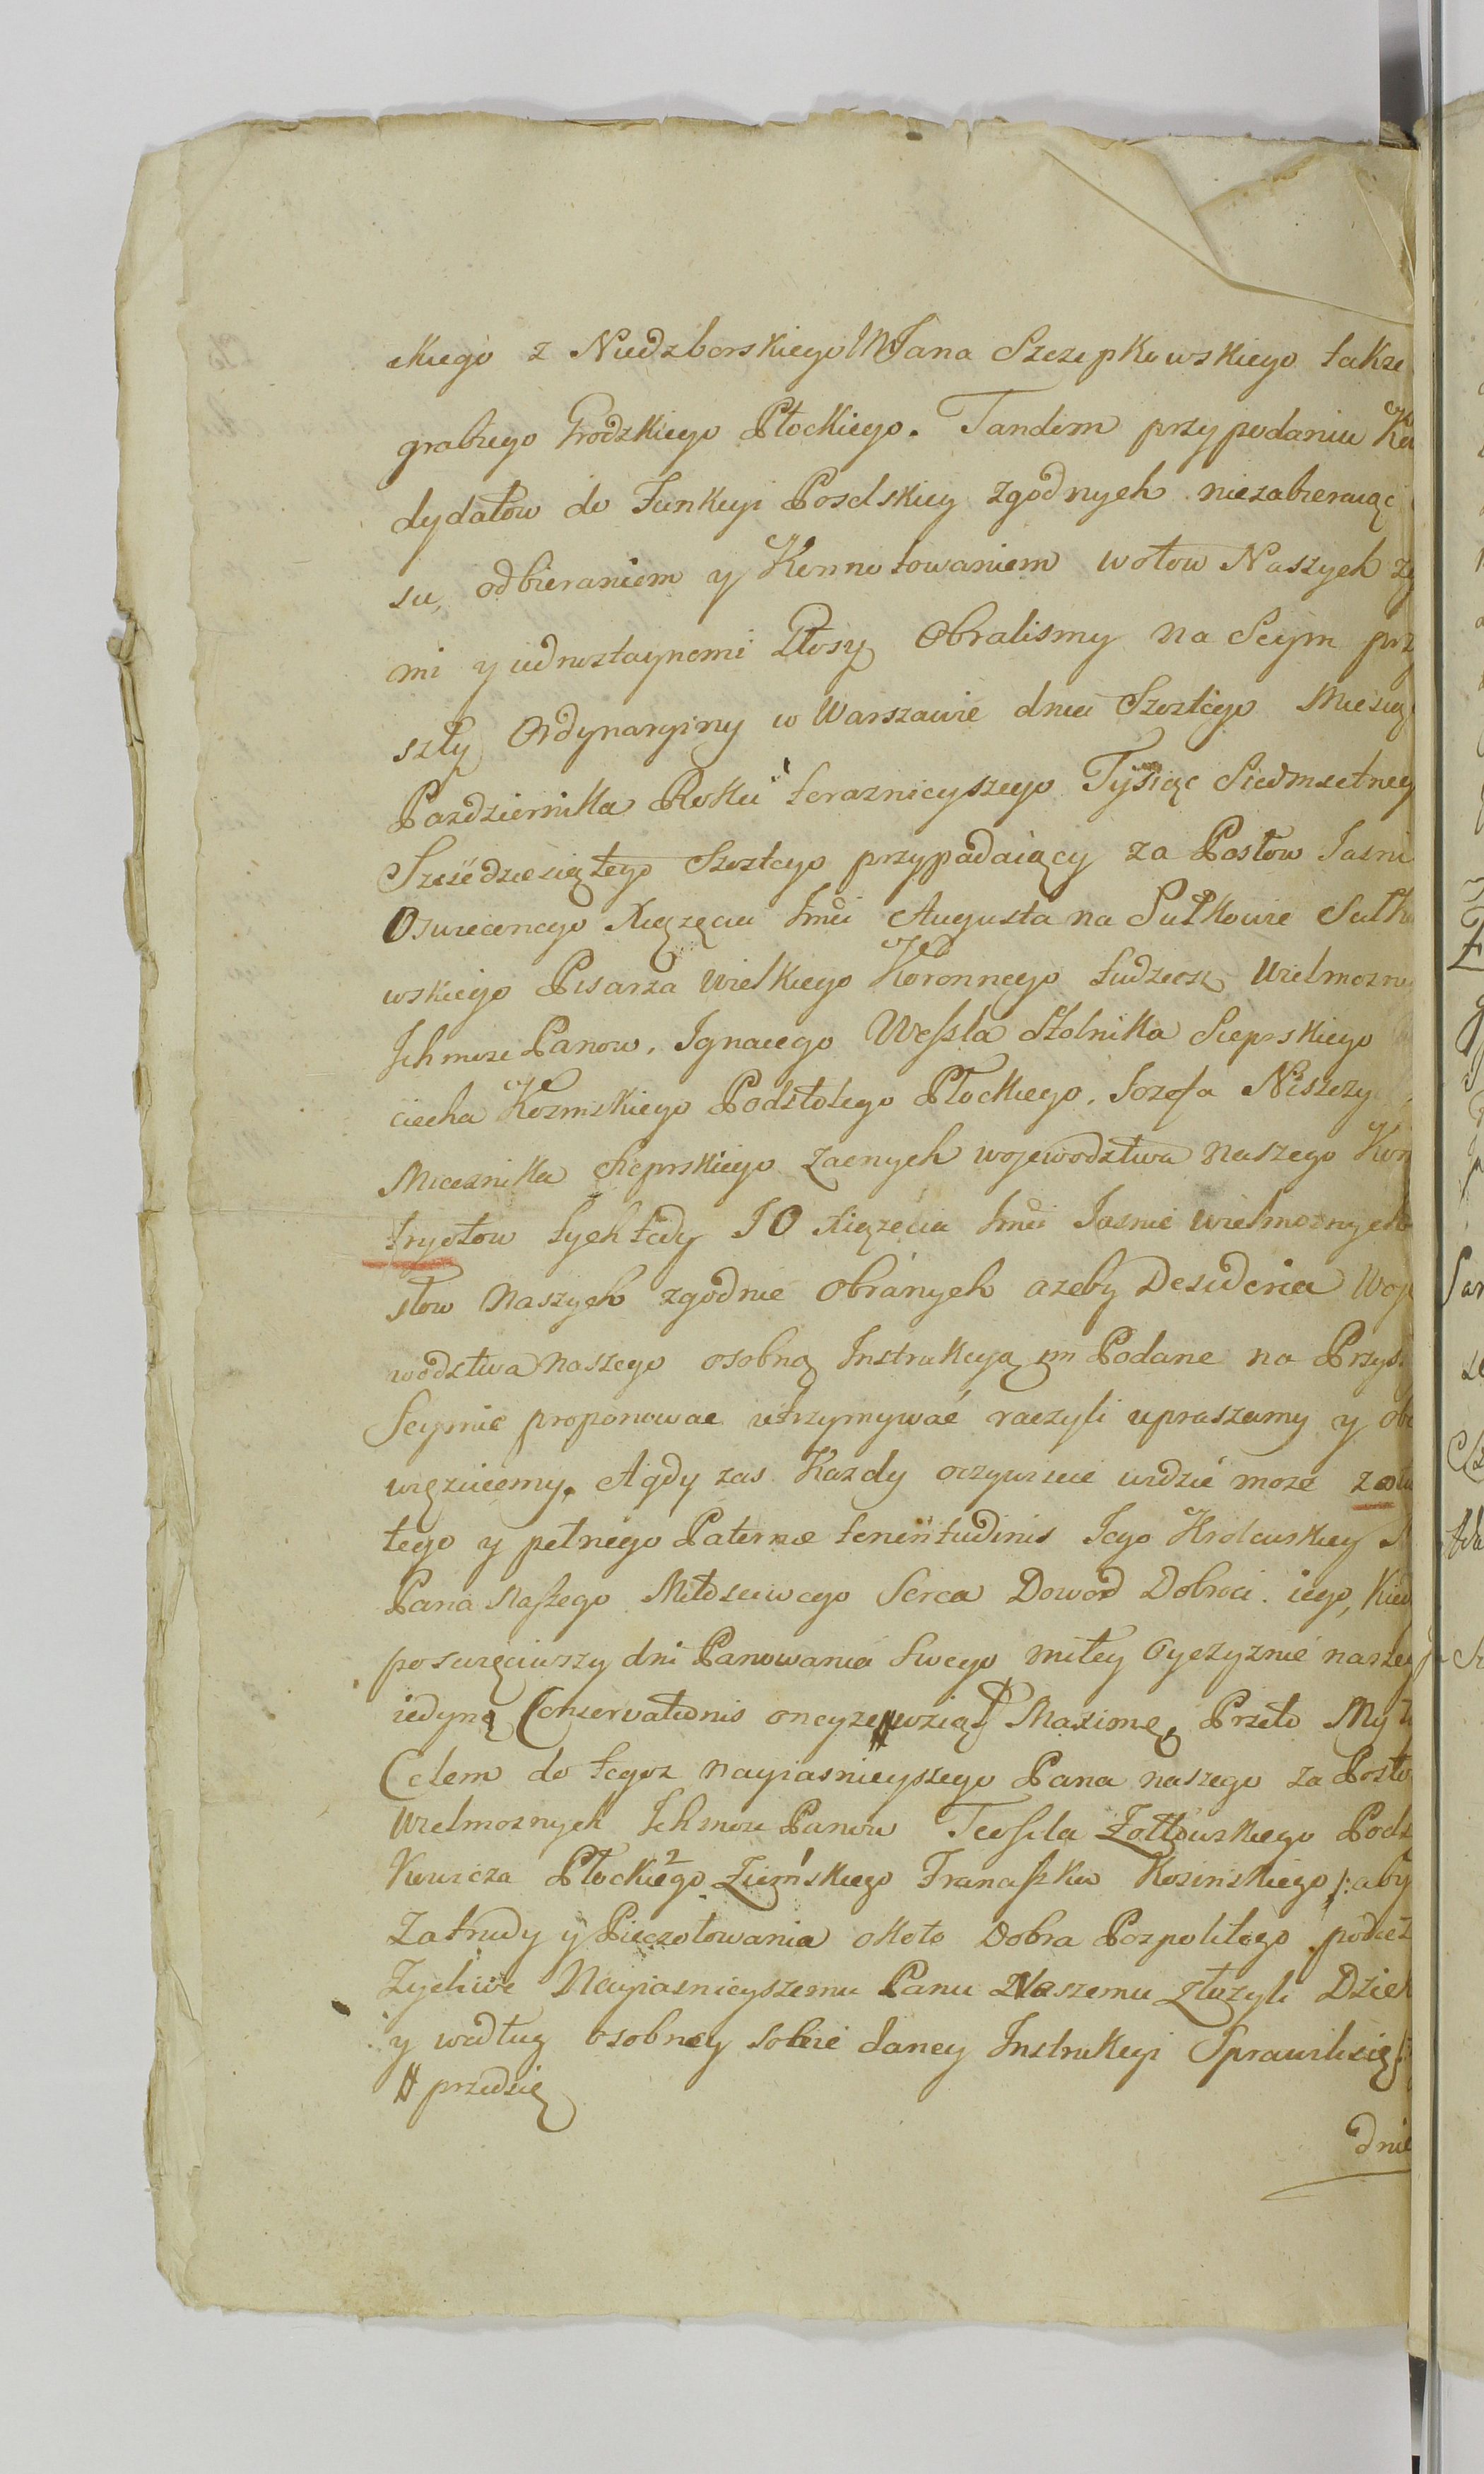 ckiego z Niedzborskiego W Jana Szczepkowskiego także
grabiego Grodzkiego Płockiego. Tandem przy podaniu Ka
dydatow do Funkcyi Poselskiey zgodnych niezabieraiąc
su, odbieraniem y Konnotowaniem wotow Naszych zg
mi y iednostaynemi Głosy Obralismy na Seym prz
szły Ordynaryiny w Warszawie dnia Szostego Miesią
Pazdziernika Roku teraznieyszego Tysiąc Siedmsetneg
Szesédziesiątego Szostego przypadaiący za Posłow Jasni
Oswieconego Xiązęcia Jmci Augusta na Sułkowie Sułko
wskiego Pisarza Wielkiego Koronnego tudziesz Wielmozny
Ichmosc Panow, Ignacego Wessla Stolnika Sieprskiego
ciecha Kozmskiego Podstolego Płockiego, Jozefa Niszczy
Miecznika Sieprskiego zacnych wojewodztwa naszego Kon
tryotow tych tedy JO Xiązęcia Jmci Jasnie Wielmoznych
słow Naszych zgodnie Obránych azeby Desideria Woje
wodztwa Naszego osobną Instrukcyą im Podane na Przys
Seymie proponowac utrzymywać raczyli upraszamy y obo
więzuiemy. A gdy zas Kazdy oczywiscie widzié moze
tego y pełnego Paternæ Jego Krolewskiey
Pana Naszego Miłosciwego Serca Dowod Dobroci iego, Kied
poswięciwszy dni Panowania Swego miłey Oyczyznie naszey
iedyną Conservationis oneyze # wziął Maximę, Przeto My
Celem do tegoz Nayiasnieyszego Pana naszego za Posło
Wielmoznych Ichmosc Panow Teofila Zołtowskiego Pods
Kowicza Płockiego Ziemskiego Franciszka Kosinskiego /: aby
Za trudy y Pieczołowania około Dobra Pozpolitego podięt
Zyczliwe Nayiasnieyszemu Panu Naszemu złozyli Dzięk
y według osobney sobie daney Instrukcyi Sprawili się
# przedsię
dnie